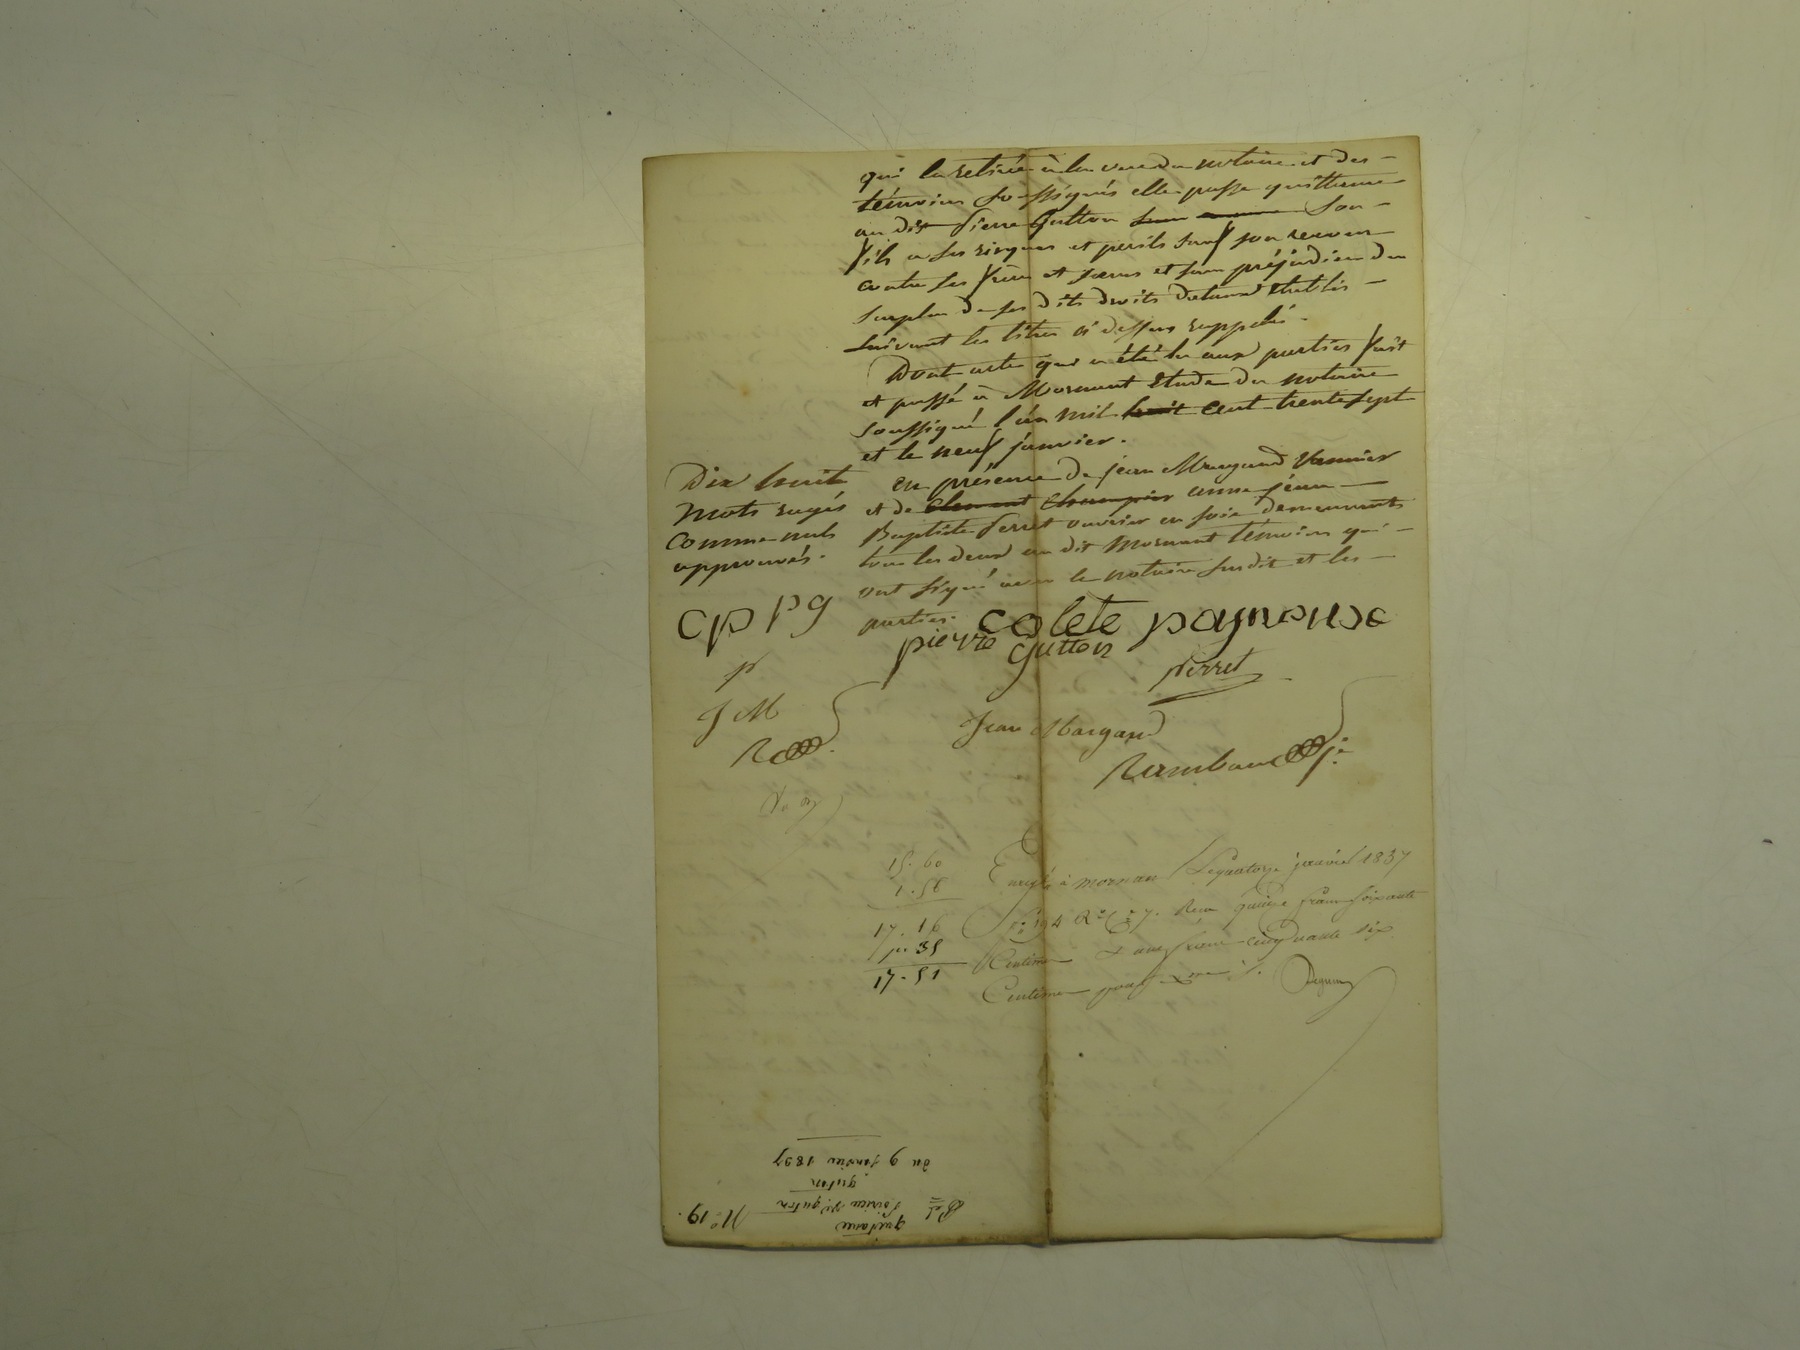 qui l'a retirée à la vue du notaire et des
témoins soussignés elle passe quittance
au dit Pierre Gutton son
fils a ses risques et perils sauf son recours
contre ses frère et sœurs et sans préjudice du
surplus de ses dits droits
suivant les titres ci dessus rappelés.
Dont acte qui a été lu aux parties fait
et passé à Mornant étude du notaire
soussigné l'an mil huit cent trente sept
et le neuf janvier.
en présence de jean Margand
et de Clement Champier
Baptiste Perret ouvrier en soie demeurants
tous les deux au dit Mornant témoins qui
ont signé avec le notaire susdit et les
parties.
Dix huit
mots rayés
comme nuls
approuvés.
cp pg
colete paynouse
pierre gutton
p
perret
J M
Jean Margand
Rambaud je
15.60
1.56
17.16
p. 35
17.51
à mornan le quatorze janvier 1837
f° 194 R° C 7. Recu quinze francs soixante
Centimes cinquante six
Centimes pour
N° 19.
quittance
gutton
du 9 janvier 1837